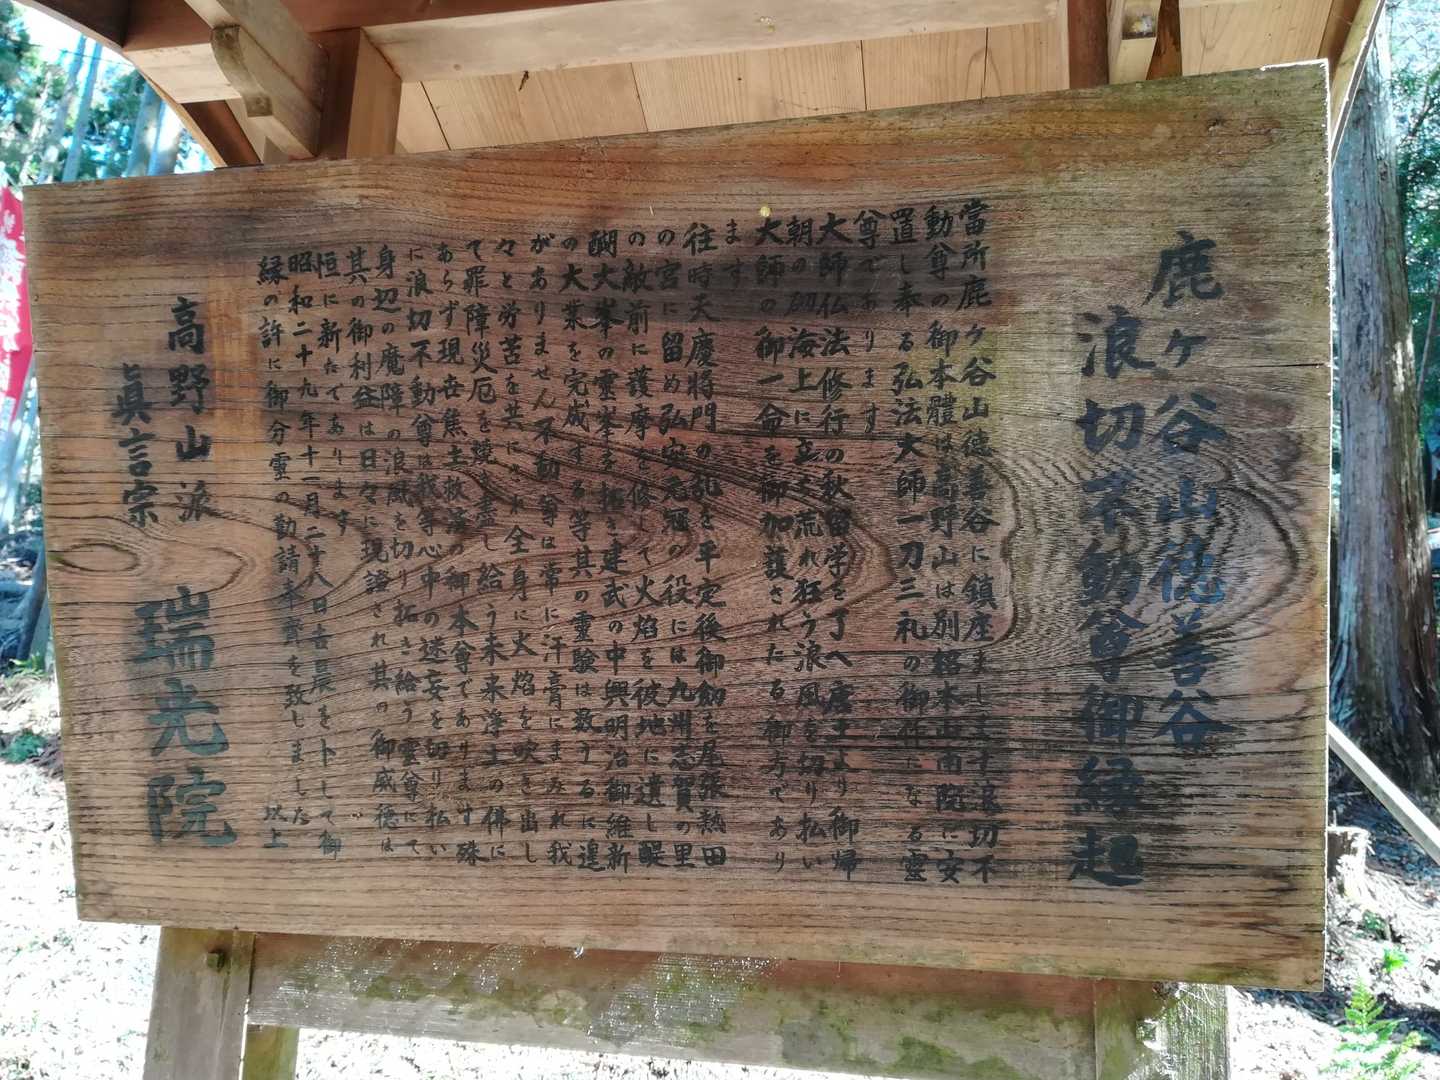 鹿ヶ谷山徳善谷
浪切不動尊御縁起
當所鹿ヶ谷山徳善谷に鎮座まします浪切不
動尊の御本體は高野山は別格本山南院に安
置し奉る弘法大師一刀三礼の御作になる靈
尊であります
大師仏法修行の秋留学を了へ唐土より御帰
朝の砌海上に立ち荒れ狂う浪風を切り払い
大師の御一命を御加護されたる御方であり
ます
往時天慶将門の乱を平定後御劔を尾張熱田
の宮に留め弘安元冦の役には九州志賀の里
の敵前に護摩を修して火焰を彼地に遺し醍
醐大峯の靈峯を拓き建武の中興明治御維新
の大業を完成する等其の靈験は数うるに遑
がありません不動尊は常に汗膏にまみれ我
々と労苦を共にされ全身に火焰を吹き出し
て罪障災厄を焼き盡し給う未来浄土の佛に
あらず現世焦土救済の御本尊であります殊
に浪切不動尊は我等心中の迷妄を切り払い
身辺の魔障の浪風を切り拓き給う靈尊にて
其の御利益は日々に現證され其の御威徳は
恒に新たであります
昭和二十九年十一月二十八日吉辰を卜して御
縁の許に御分靈の勧請奉齋を致しました
以上
高野山派
眞言宗
瑞光院